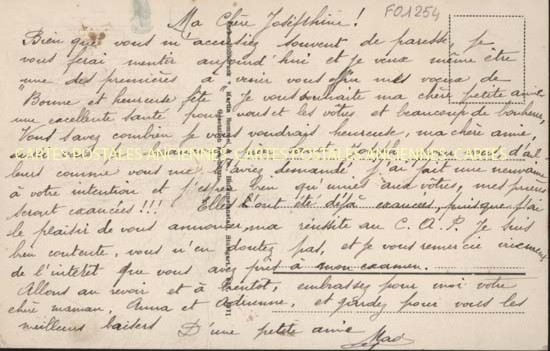 Ma Chère Joséphine !
F01254
Bien que vous m'accusiez souvent de paresse, je
vous ferai mentir aujourd'hui et je veux même être
une des premières à venir vous offrir mes voeux de
"Bonne et heureuse fête". Je vous souhaite ma chère petite amie
une excellente santé pour vous et les vôtres et beaucoup de bonheur,
Vous savez combien je vous voudrais heureuse, ma chère amie,
CARTES POSTALES ANCIENNES CARTES POSTALES ANCIENNES CARTES
leurs comme vous me l'aviez demandé j'ai fait une neuvaine
à votre intention et j'espère bien qu'unies aux vôtres, mes prières
seront exaucées !!! Elles l'ont été déjà exaucées, puisque j'ai
le plaisir de vous annoncer ma réussite au C.A.P. Je suis
bien contente, vous n'en doutez pas, et je vous remercie
de l'intérêt que vous avez pris à mon examen.
Allons au revoir et à bientôt, embrassez pour moi votre
chère maman, Anna et Adrienne, et gardez pour vous les
meilleurs baisers D'une petite amie
Mad